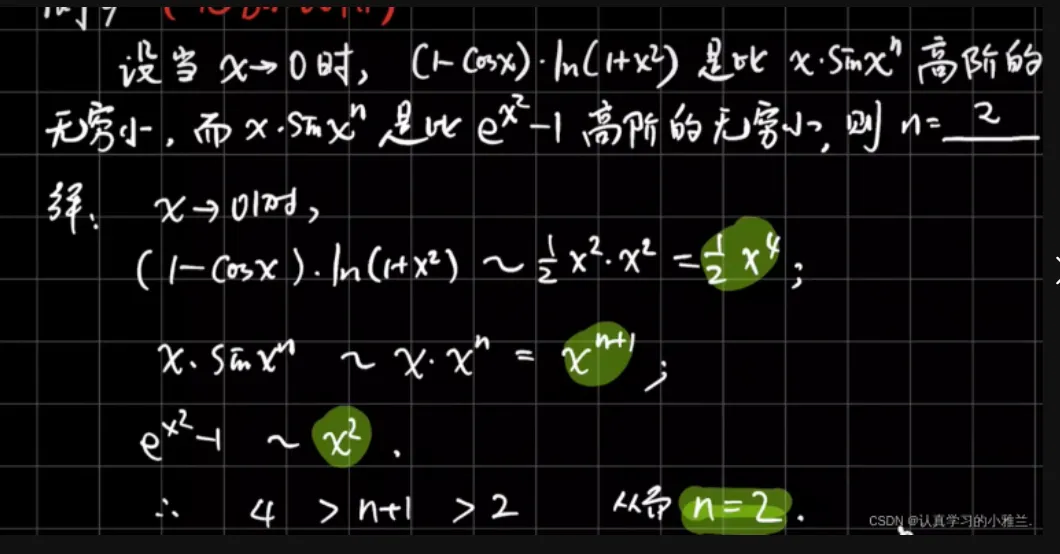 设当 x→0时, (1-cosx)·ln(1+x²) 是比 x·sinxⁿ 高阶的
无穷小, 而 x·sinxⁿ 是比 e^{x²}-1 高阶的无穷小, 则 n= 2
解: x→0时,
(1-cosx)·ln(1+x²) ~ ½x²·x² = ½x⁴;
x·sinxⁿ ~ x·xⁿ = xⁿ⁺¹;
e^{x²}-1 ~ x².
∴ 4 > n+1 > 2 从而 n=2.
CSDN @认真学习的小雅兰.